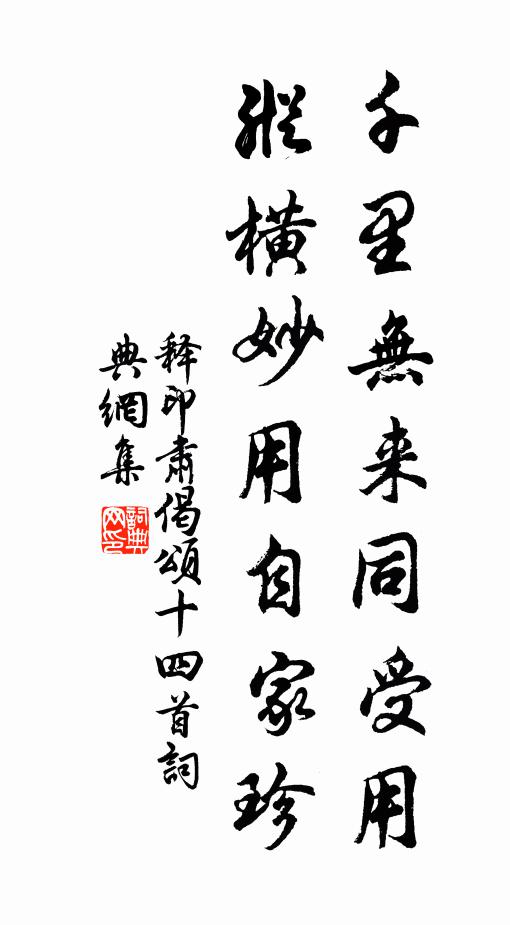 千里無来同受用
縱橫妙用自家珍
释印肅偈頌十四首詞
典網集
詞典网印